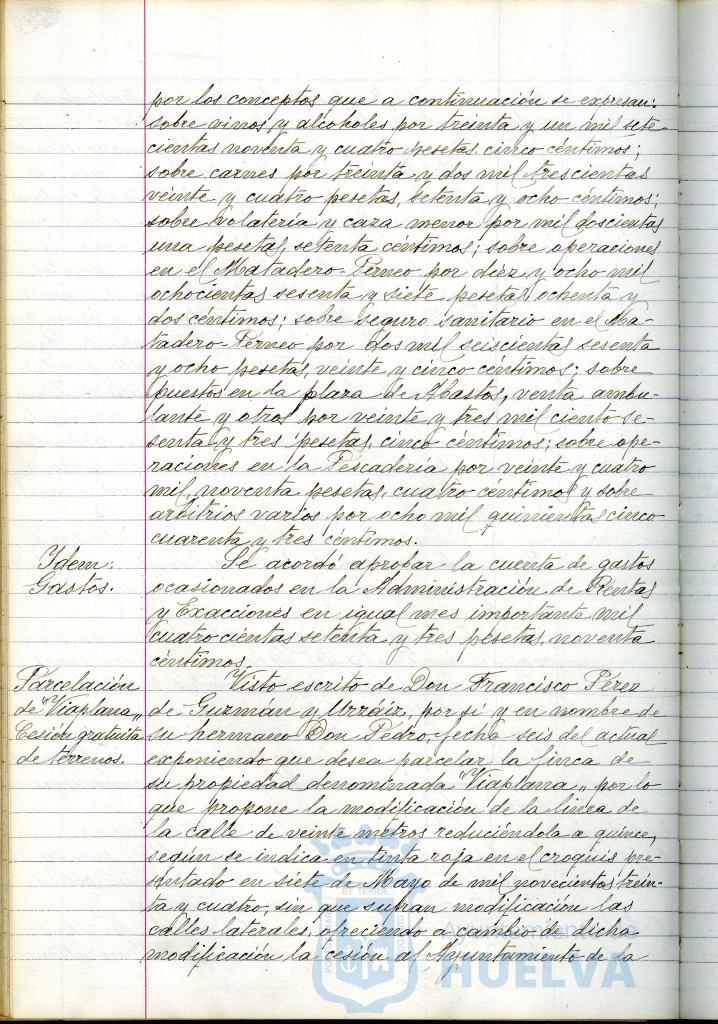 por los conceptos que a continuación se expresan:
sobre vinos y alcoholes por treinta y un mil sete-
cientas noventa y cuatro pesetas, cinco céntimos;
sobre carnes por treinta y dos mil trescientas
veinte y cuatro pesetas, setenta y ocho céntimos;
sobre volatería y caza menor por mil doscientas
una pesetas, setenta céntimos; sobre operaciones
en el Matadero-Perneo por diez y ocho mil
ochocientas sesenta y siete pesetas, ochenta y
dos céntimos; sobre seguro sanitario en el Ma-
tadero-Perneo por dos mil seiscientas sesenta
y ocho pesetas, veinte y cinco céntimos; sobre
puestos en la plaza de Abastos, venta ambu-
lante y otros por veinte y tres mil ciento se-
senta y tres pesetas, cinco céntimos; sobre ope-
raciones en la Pescadería por veinte y cuatro
mil, noventa pesetas, cuatro céntimos y sobre
arbitrios varios por ocho mil quinientas cinco
cuarenta y tres céntimos.
Idem:
Gastos.
Se acordó aprobar la cuenta de gastos
ocasionados en la Administración de Rentas
y Exacciones en igual mes importante mil
cuatrocientas setenta y tres pesetas, noventa
céntimos.
Parcelación
de "Viaplana"
Cesión gratuita
de terrenos.
Visto escrito de Don Francisco Pérez
de Guzmán y Urzáiz, por sí y en nombre de
su hermano Don Pedro, fecha seis del actual
exponiendo que desea parcelar la finca de
su propiedad denominada "Viaplana" por lo
que propone la modificación de la línea de
la calle de veinte metros reduciéndola a quince,
según se indica en tinta roja en el croquis pre-
sentado en siete de Mayo de mil novecientos trein-
ta y cuatro, sin que sufran modificación las
calles laterales, ofreciendo a cambio de dicha
modificación la cesión al Ayuntamiento de la
Ayuntamiento de
HUELVA